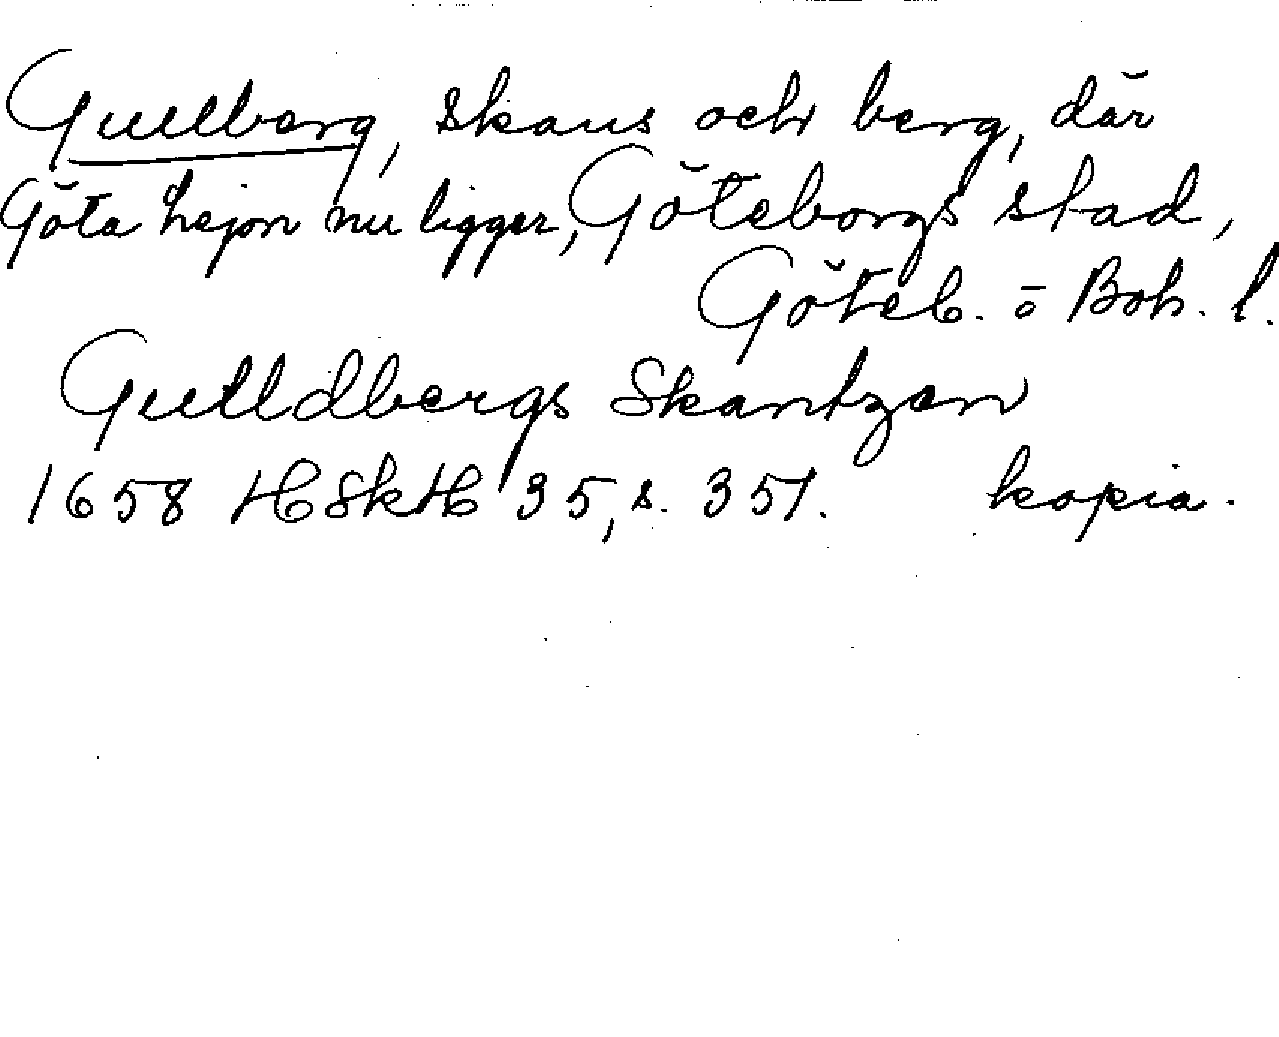 Gullberg, skans och berg, där
Göta lejon nu ligger, Göteborgs stad,
Göteb. o Boh. l.
Gulldbergs Skantzen
1658 HSkH 35, s. 351. kopia.